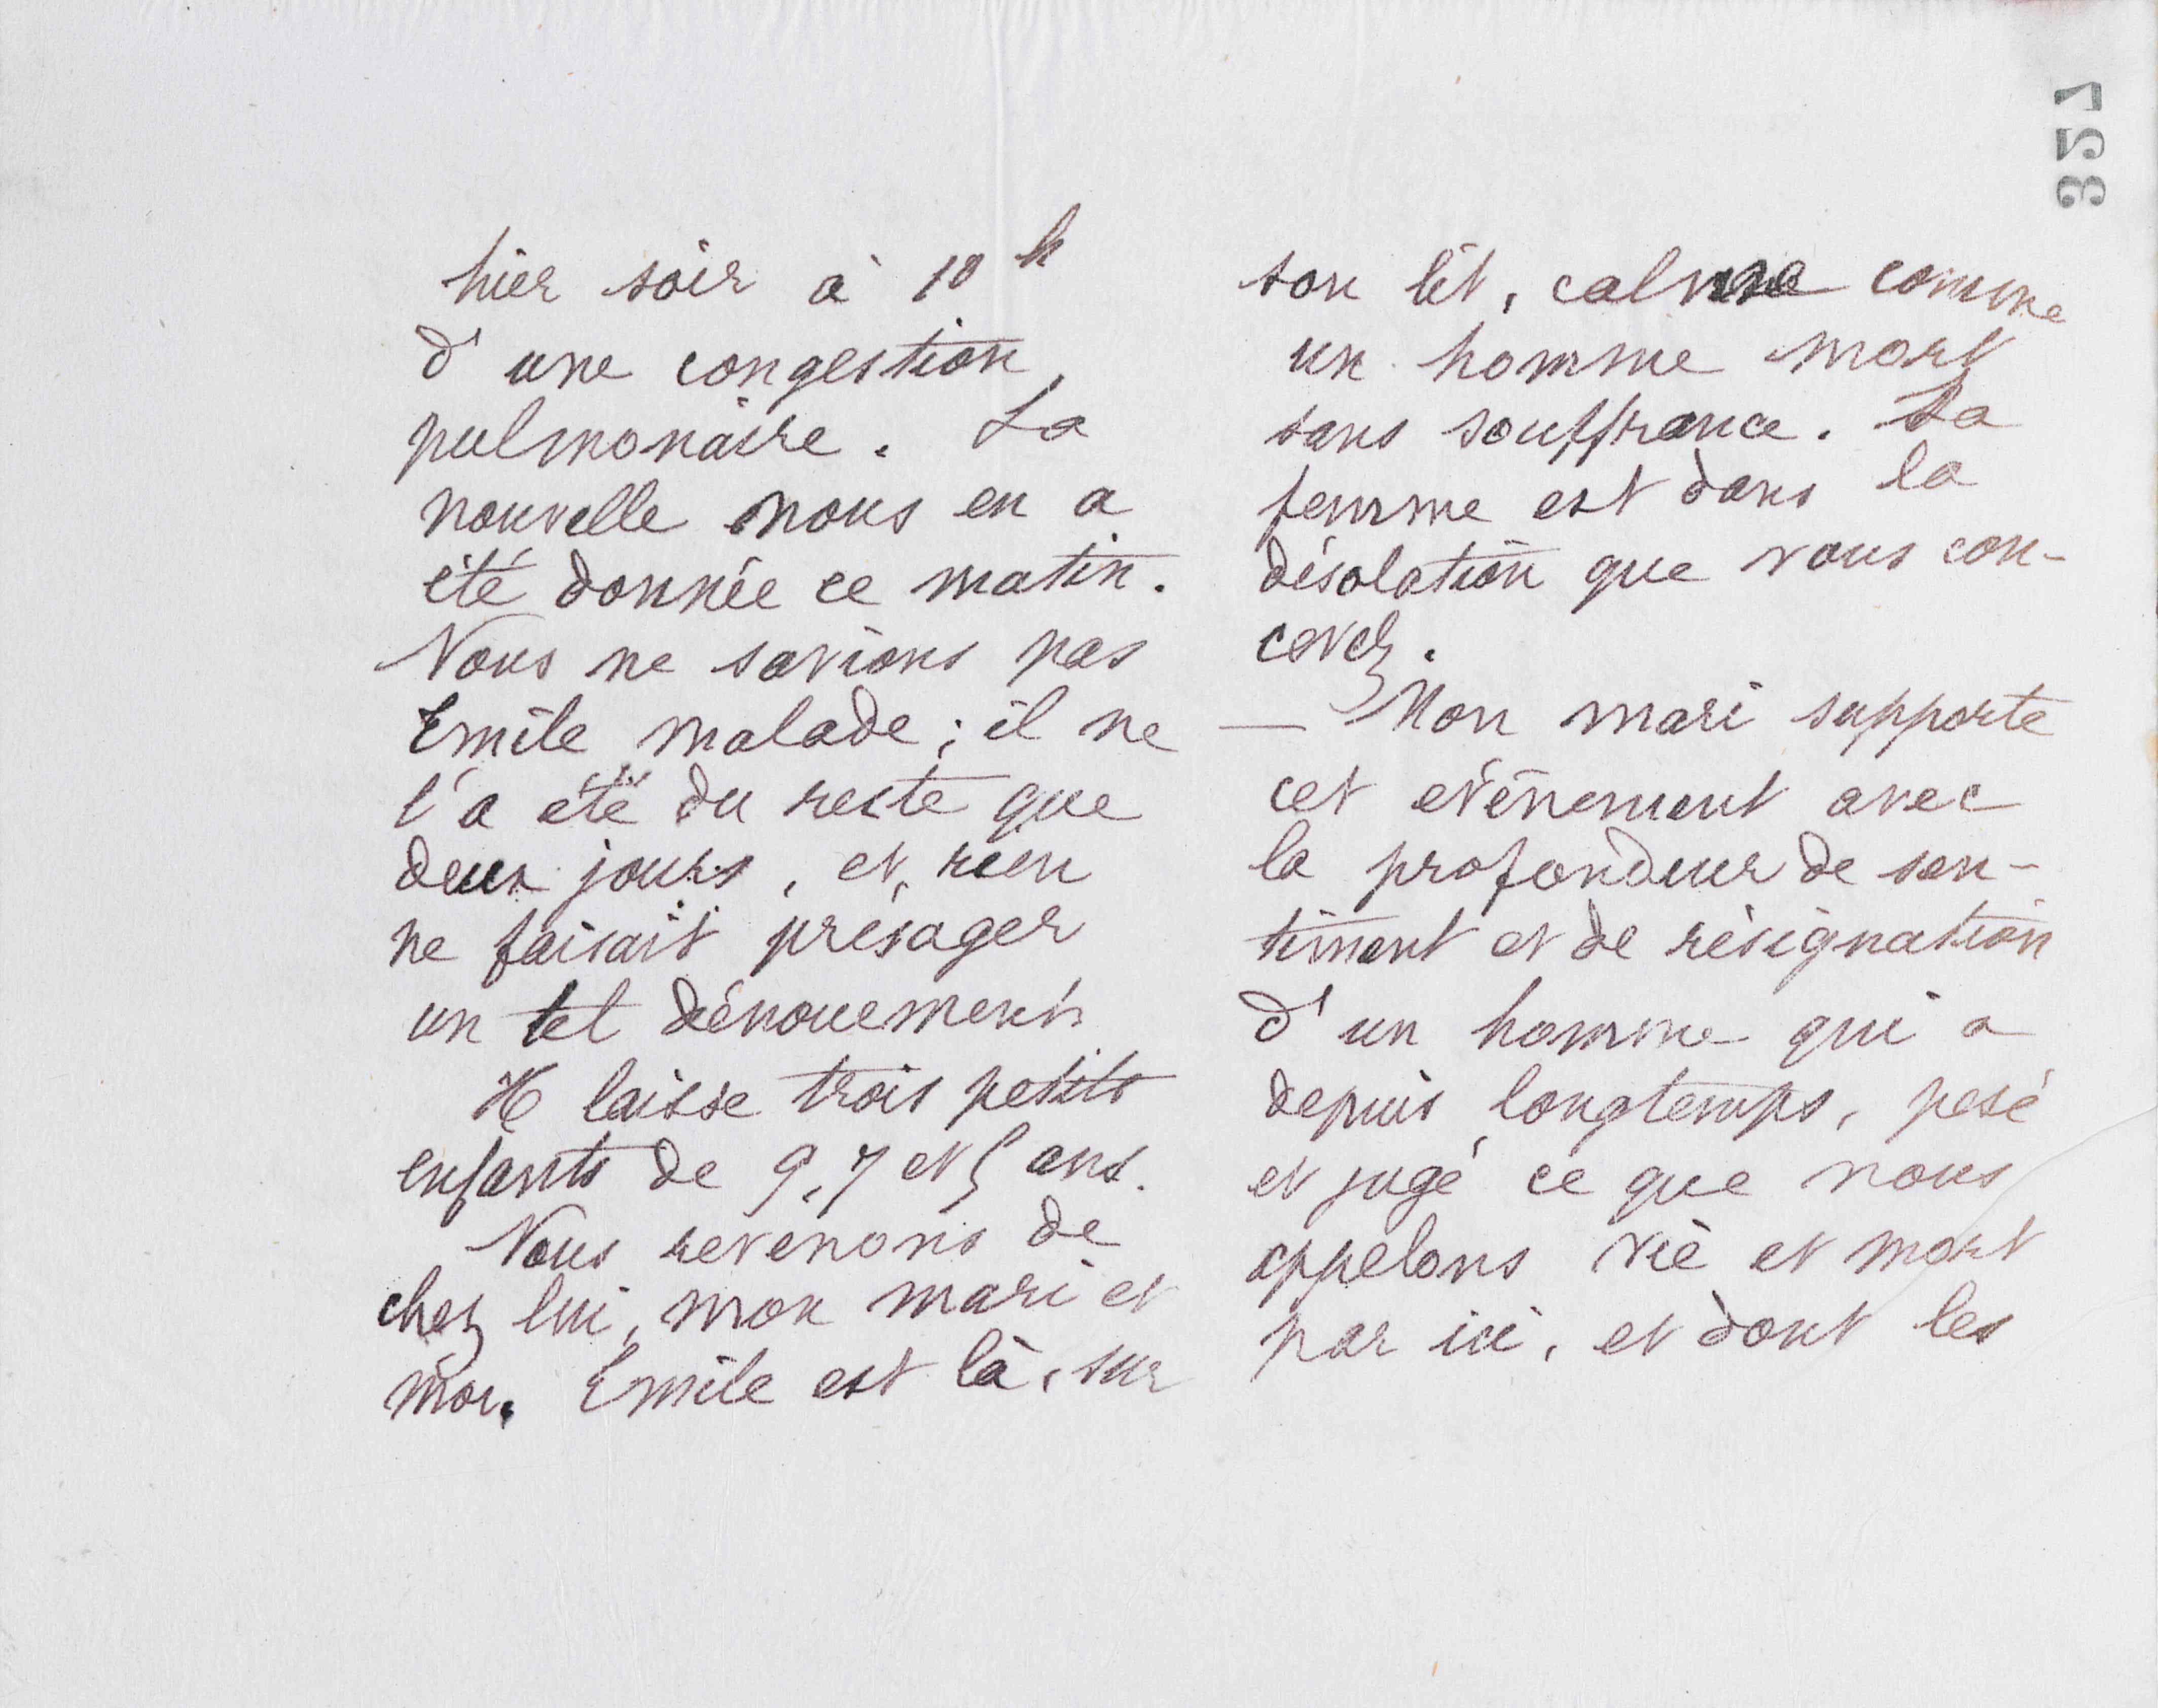 hier soir à 10 h
d'une congestion
pulmonaire. La
nouvelle nous en a
été donnée ce matin.
Nous ne savions pas
Emile malade ; il ne
l'a été du reste que
deux jours, et, rien
ne faisait présager
un tel dénouement.
Il laisse trois petits
enfants de 9, 7 et 5 ans.
Nous revenons de
chez lui, mon mari et
moi. Emile est là, sur
son lit, calme comme
un homme mort
sans souffrance. Sa
femme est dans la
désolation que vous con-
cevez.
— Mon mari supporte
cet evènement avec
la profondeur de sen-
timent et de résignation
d'un homme qui a
depuis longtemps, pesé
et jugé ce que nous
appelons vie et mort
par ici, et dont les
351